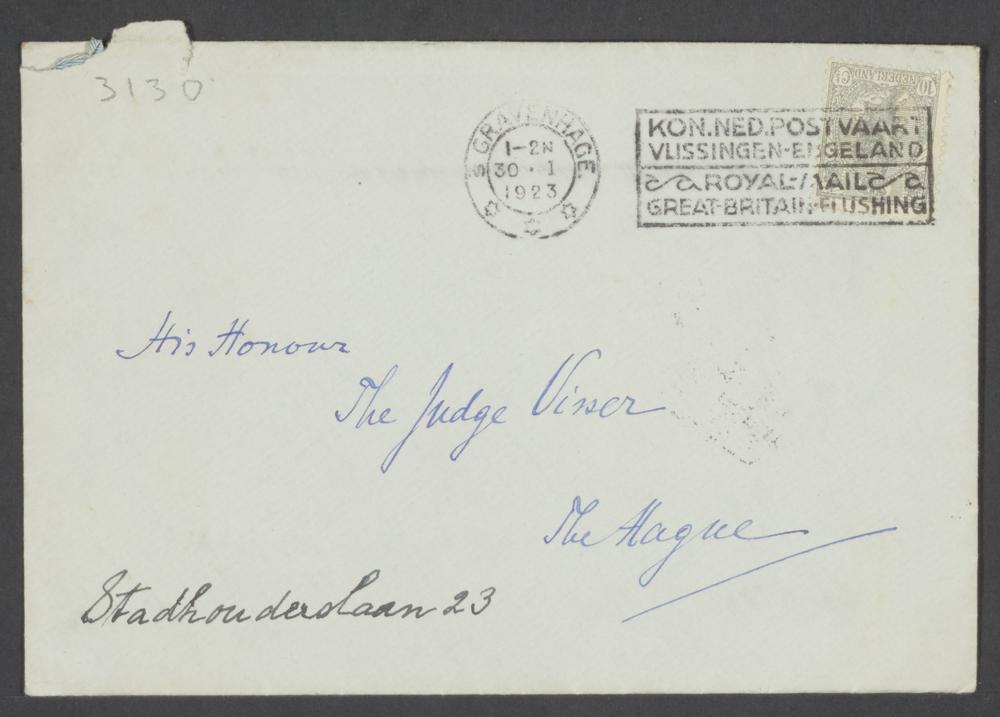 3130
'S GRAVENHAGE.
1-2N
30 · I
1923
KON.NED.POSTVAART
VLISSINGEN-ENGELAND
ROYAL-MAIL
GREAT-BRITAIN-FLUSHING
NEDERLAND
10 Ct
His Honour
The Judge Visser
The Hague
Stadhouderslaan 23